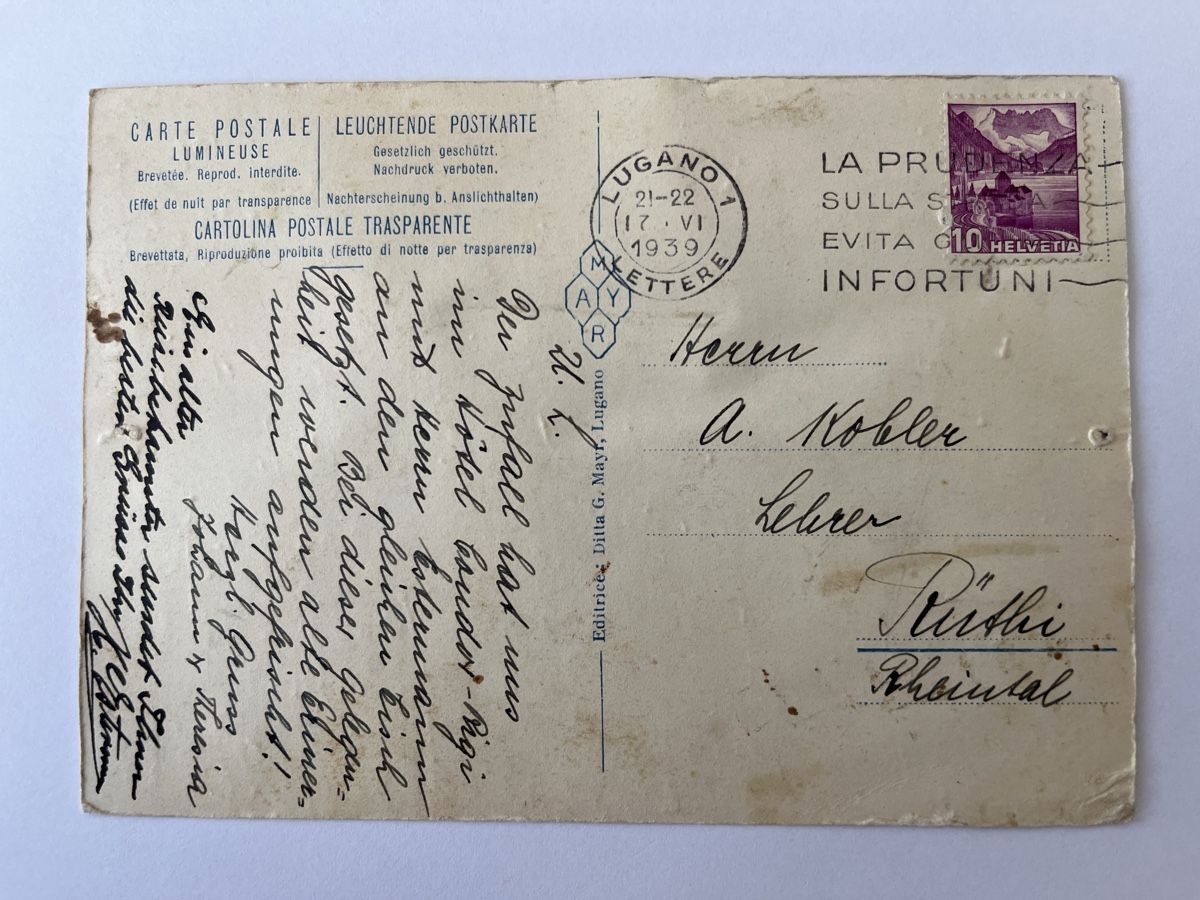 CARTE POSTALE
LUMINEUSE
Brevetée. Reprod. interdite.
(Effet de nuit par transparence
LEUCHTENDE POSTKARTE
Gesetzlich geschützt.
Nachdruck verboten.
Nachterscheinung b. Anslichthalten)
CARTOLINA POSTALE TRASPARENTE
Brevettata, Riproduzione proibita (Effetto di notte per trasparenza)
U. L.
Der Zufall hat uns
im Hotel Bruder-Rigi
mit Herrn Estermann
an den gleichen Tisch
gesetzt. Bei dieser Gelegen=
heit werden alte Erinner=
ungen aufgefrischt!
Herzl. Gruss
Johann & Theresia
Ein alter
sendet Ihnen
die besten Grüsse Ihr
MAYR
Editrice: Ditta G. Mayr, Lugano
LUGANO 1
21-22
17. VI
1939
LETTERE
LA PRUDENZA
SULLA
EVITA
INFORTUNI
10 HELVETIA
Herrn
A. Kobler
Lehrer
Rüthi
Rheintal